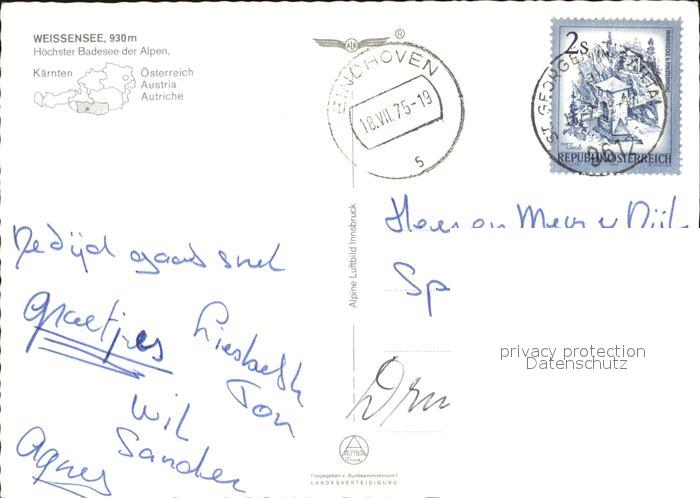 WEISSENSEE, 930 m
Höchster Badesee der Alpen,
Kärnten Österreich
Austria
Autriche
ALU ®
EINDHOVEN
18.VII.75-19
5
2s
ST. GEORGEN IM
9612
REPUBLIK ÖSTERREICH
Alpine Luftbild Innsbruck
De tijd gaat snel
Groetjes Liesbeth
Ton
Wil
Sander
Agnes
Heer en Mevr v Dijk
Sp
Dru
privacy protection
Datenschutz
ALPINE
Freigegeben v. Bundesministerium f.
LANDESVERTEIDIGUNG